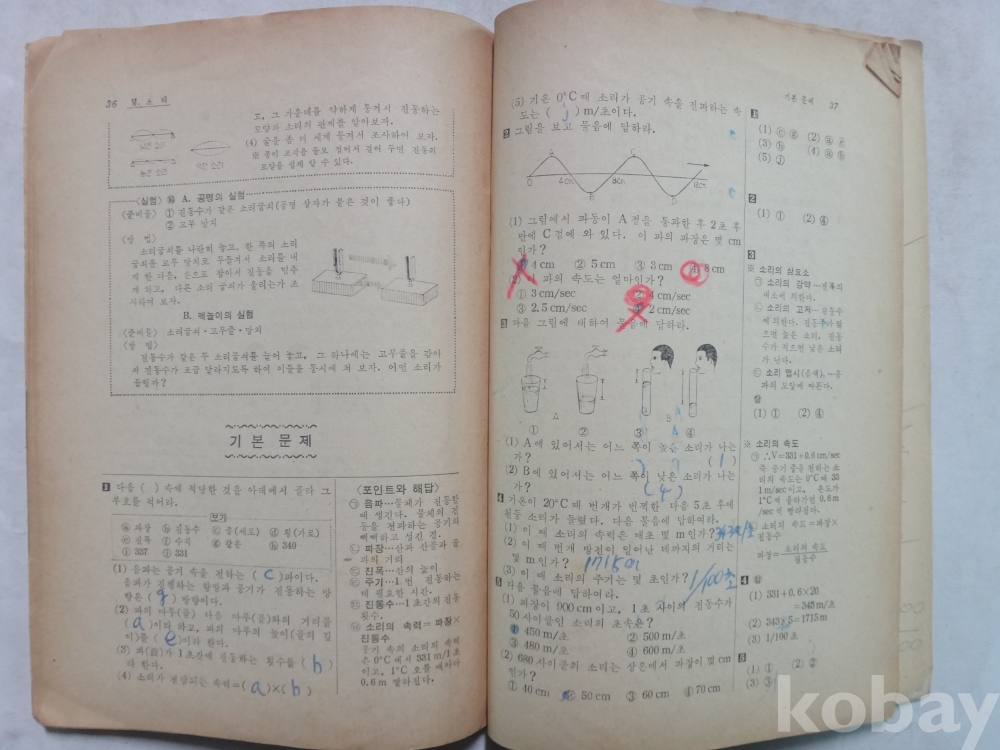 36 Ⅶ. 소 리
고, 그 가운데를 약하게 퉁겨서 진동하는
모양과 소리의 관계를 알아보자.
(4) 줄을 좀 더 세게 퉁겨서 조사하여 보자.
※ 종이 조각을 줄로 접어서 걸어 두면 진동의
모양을 쉽게 알 수 있다.
〈실험〉 ⑩ A. 공명의 실험
〈준비물〉 ① 진동수가 같은 소리굽쇠(공명 상자가 붙은 것이 좋다)
② 고무 망치
〈방 법〉
소리굽쇠를 나란히 놓고, 한 쪽의 소리
굽쇠를 고무 망치로 두들겨서 소리를 내
게 한 다음, 손으로 잡아서 진동을 멈추
게 하고, 다른 소리 굽쇠가 울리는가 조
사하여 보자.
B. 맥놀이의 실험
〈준비물〉 소리굽쇠·고무줄·망치
〈방 법〉
진동수가 같은 두 소리굽쇠를 늘어 놓고, 그 하나에는 고무줄을 감아
서 진동수가 조금 달라지도록 하여 이들을 동시에 쳐 보자. 어떤 소리가
들릴까?
기 본 문 제
1 다음 ( ) 속에 적당한 것을 아래에서 골라 그
부호를 적어라.
보기
ⓐ 파장 ⓑ 진동수 ⓒ 종(세로) ⓓ 횡(가로)
ⓔ 진폭 ⓕ 수직 ⓖ 같은 ⓗ 340
ⓘ 337 ⓙ 331
(1) 음파는 공기 속을 전하는 ( c )파이다.
음파가 진행하는 방향과 공기가 진동하는 방
향은 ( g ) 방향이다.
(2) 파의 마루(골) 다음 마루(골)와의 거리를
( a )이라 하고, 파의 마루의 높이(골의 깊
이)를 ( e )이라 한다.
(3) 파(음)가 1초간에 진동하는 횟수를 ( b )
라 한다.
(4) 소리가 전달되는 속력=( a )×( b )
〈포인트와 해답〉
㉠ 음파…물체가 진동할
때 생긴다. 물체의 진
동을 전파하는 공기의
빽빽하고 성긴 결.
㉡ 파장…산과 산 골과 골
의 거리
㉢ 진폭…산의 높이
㉣ 주기…1번 진동하는
데 필요한 시간.
㉤ 진동수…1초간의 진동
횟수.
㉥ 소리의 속력=파장×
진동수
공기 속의 소리의 속력
은 0°C에서 331m/1초
이고, 1°C 오를 때마다
0.6m 빨라진다.
기본 문제 37
(5) 기온 0°C 때 소리가 공기 속을 전파하는 속
도는 ( j ) m/초이다.
2 그림을 보고 물음에 답하라.
A C
O 4cm 8cm 12cm
B D
(1) 그림에서 파동이 A점을 통과한 후 2초 후
만에 C점에 와 있다. 이 파의 파장은 몇 cm
인가?
① 4 cm ② 5 cm ③ 3 cm ④ 8 cm
(2) 이 파의 속도는 얼마인가?
① 3 cm/sec ② 4 cm/sec
③ 2.5 cm/sec ④ 2 cm/sec
3 다음 그림에 대하여 물음에 답하라.
A B
① ② ③ ④
(1) A에 있어서는 어느 쪽이 높은 소리가 나는
가? ( 1 )
(2) B에 있어서는 어느 쪽이 낮은 소리가 나는
가? ( 4 )
4 기온이 20°C 때 번개가 번쩍한 다음 5초 후에
천둥 소리가 들렸다. 다음 물음에 답하여라.
(1) 이 때 소리의 속력은 매초 몇 m인가? 343m/초
(2) 이 때 번개 방전이 일어난 데까지의 거리는
몇 m인가? 1715m
(3) 이 때 소리의 주기는 몇 초인가? 1/100초
5 다음 물음에 답하여라.
(1) 파장이 900cm이고, 1초 사이의 진동수가
50사이클인 소리의 초속은?
① 450 m/초 ② 500 m/초
③ 480 m/초 ④ 600 m/초
(2) 680사이클의 소리는 상온에서 파장이 몇 cm
인가?
① 40 cm ② 50 cm ③ 60 cm ④ 70 cm
1
(1) ⓒ ⓖ (2) ⓐ ⓔ
(3) ⓑ (4) ⓐ ⓑ
(5) ⓙ
2
(1) ① (2) ④
3
※ 소리의 삼요소
㉠ 소리의 강약…진폭의
대소에 의한다.
㉡ 소리의 고저…진동수
에 의한다. 진동수가 많
으면 높은 소리, 진동
수가 적으면 낮은 소리
가 난다.
㉢ 소리 맵시(음색)…음
파의 모양에 따른다.
답
(1) ① (2) ④
※ 소리의 속도
㉠ ∴V=331+0.6tm/sec
즉 공기 중을 전하는 소
리의 속도는 0°C에 33
1m/sec이고, 온도가
1°C씩 올라가면 0.6m
/sec씩 빨라진다.
㉡ 소리의 속도=파장×
진동수
파장=소리의 속도/진동수
4 답
(1) 331+0.6×20
=343m/초
(2) 343×5=1715m
(3) 1/100초
5
(1) ① (2) ②
(3) ③
kobay